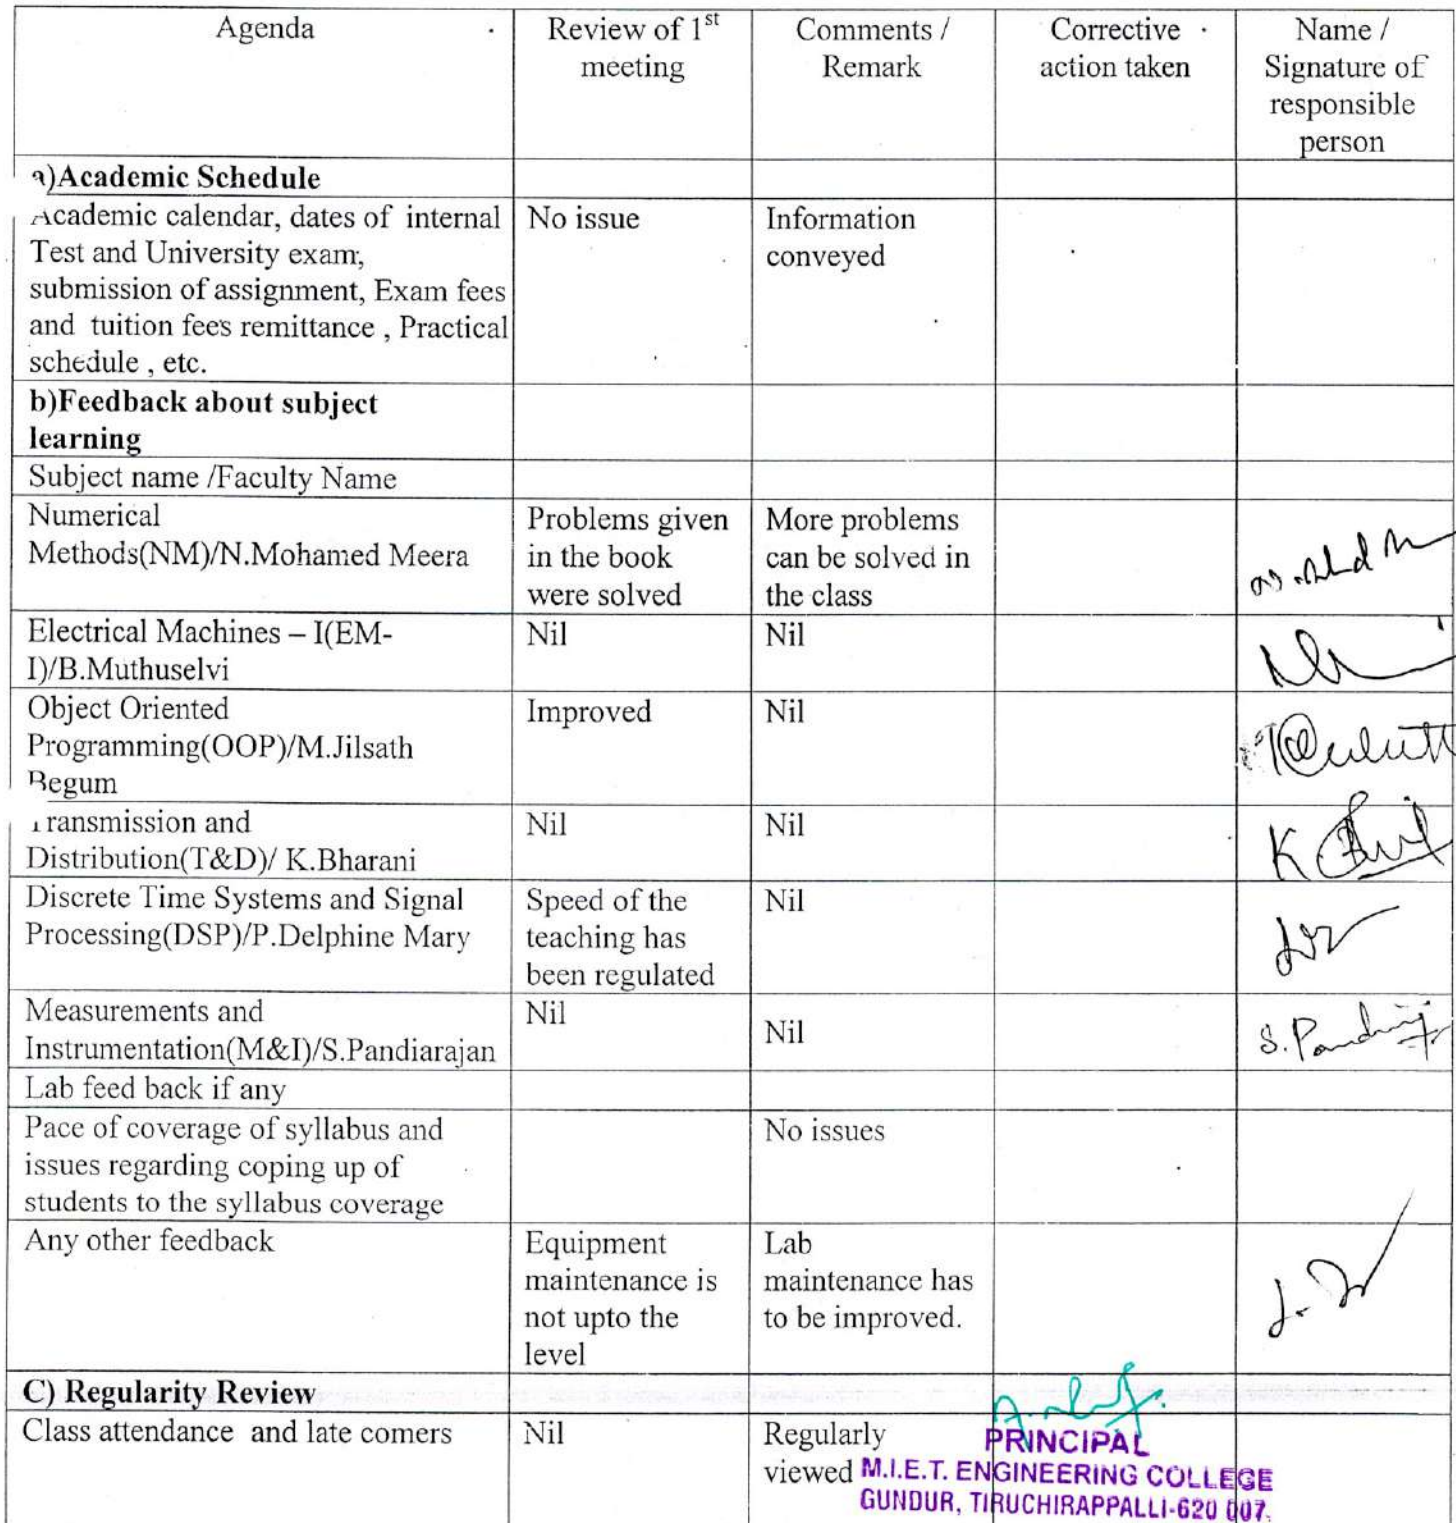 Agenda
Review of 1st
meeting
Comments /
Remark
Corrective
action taken
Name /
Signature of
responsible
person
a)Academic Schedule
Academic calendar, dates of internal
Test and University exam,
submission of assignment, Exam fees
and tuition fees remittance , Practical
schedule , etc.
No issue
Information
conveyed
b)Feedback about subject
learning
Subject name /Faculty Name
Numerical
Methods(NM)/N.Mohamed Meera
Problems given
in the book
were solved
More problems
can be solved in
the class
Electrical Machines – I(EM-
I)/B.Muthuselvi
Nil
Nil
Object Oriented
Programming(OOP)/M.Jilsath
Begum
Improved
Nil
Transmission and
Distribution(T&D)/ K.Bharani
Nil
Nil
Discrete Time Systems and Signal
Processing(DSP)/P.Delphine Mary
Speed of the
teaching has
been regulated
Nil
Measurements and
Instrumentation(M&I)/S.Pandiarajan
Nil
Nil
Lab feed back if any
Pace of coverage of syllabus and
issues regarding coping up of
students to the syllabus coverage
No issues
Any other feedback
Equipment
maintenance is
not upto the
level
Lab
maintenance has
to be improved.
C) Regularity Review
Class attendance and late comers
Nil
Regularly
viewed
PRINCIPAL
M.I.E.T. ENGINEERING COLLEGE
GUNDUR, TIRUCHIRAPPALLI-620 007.